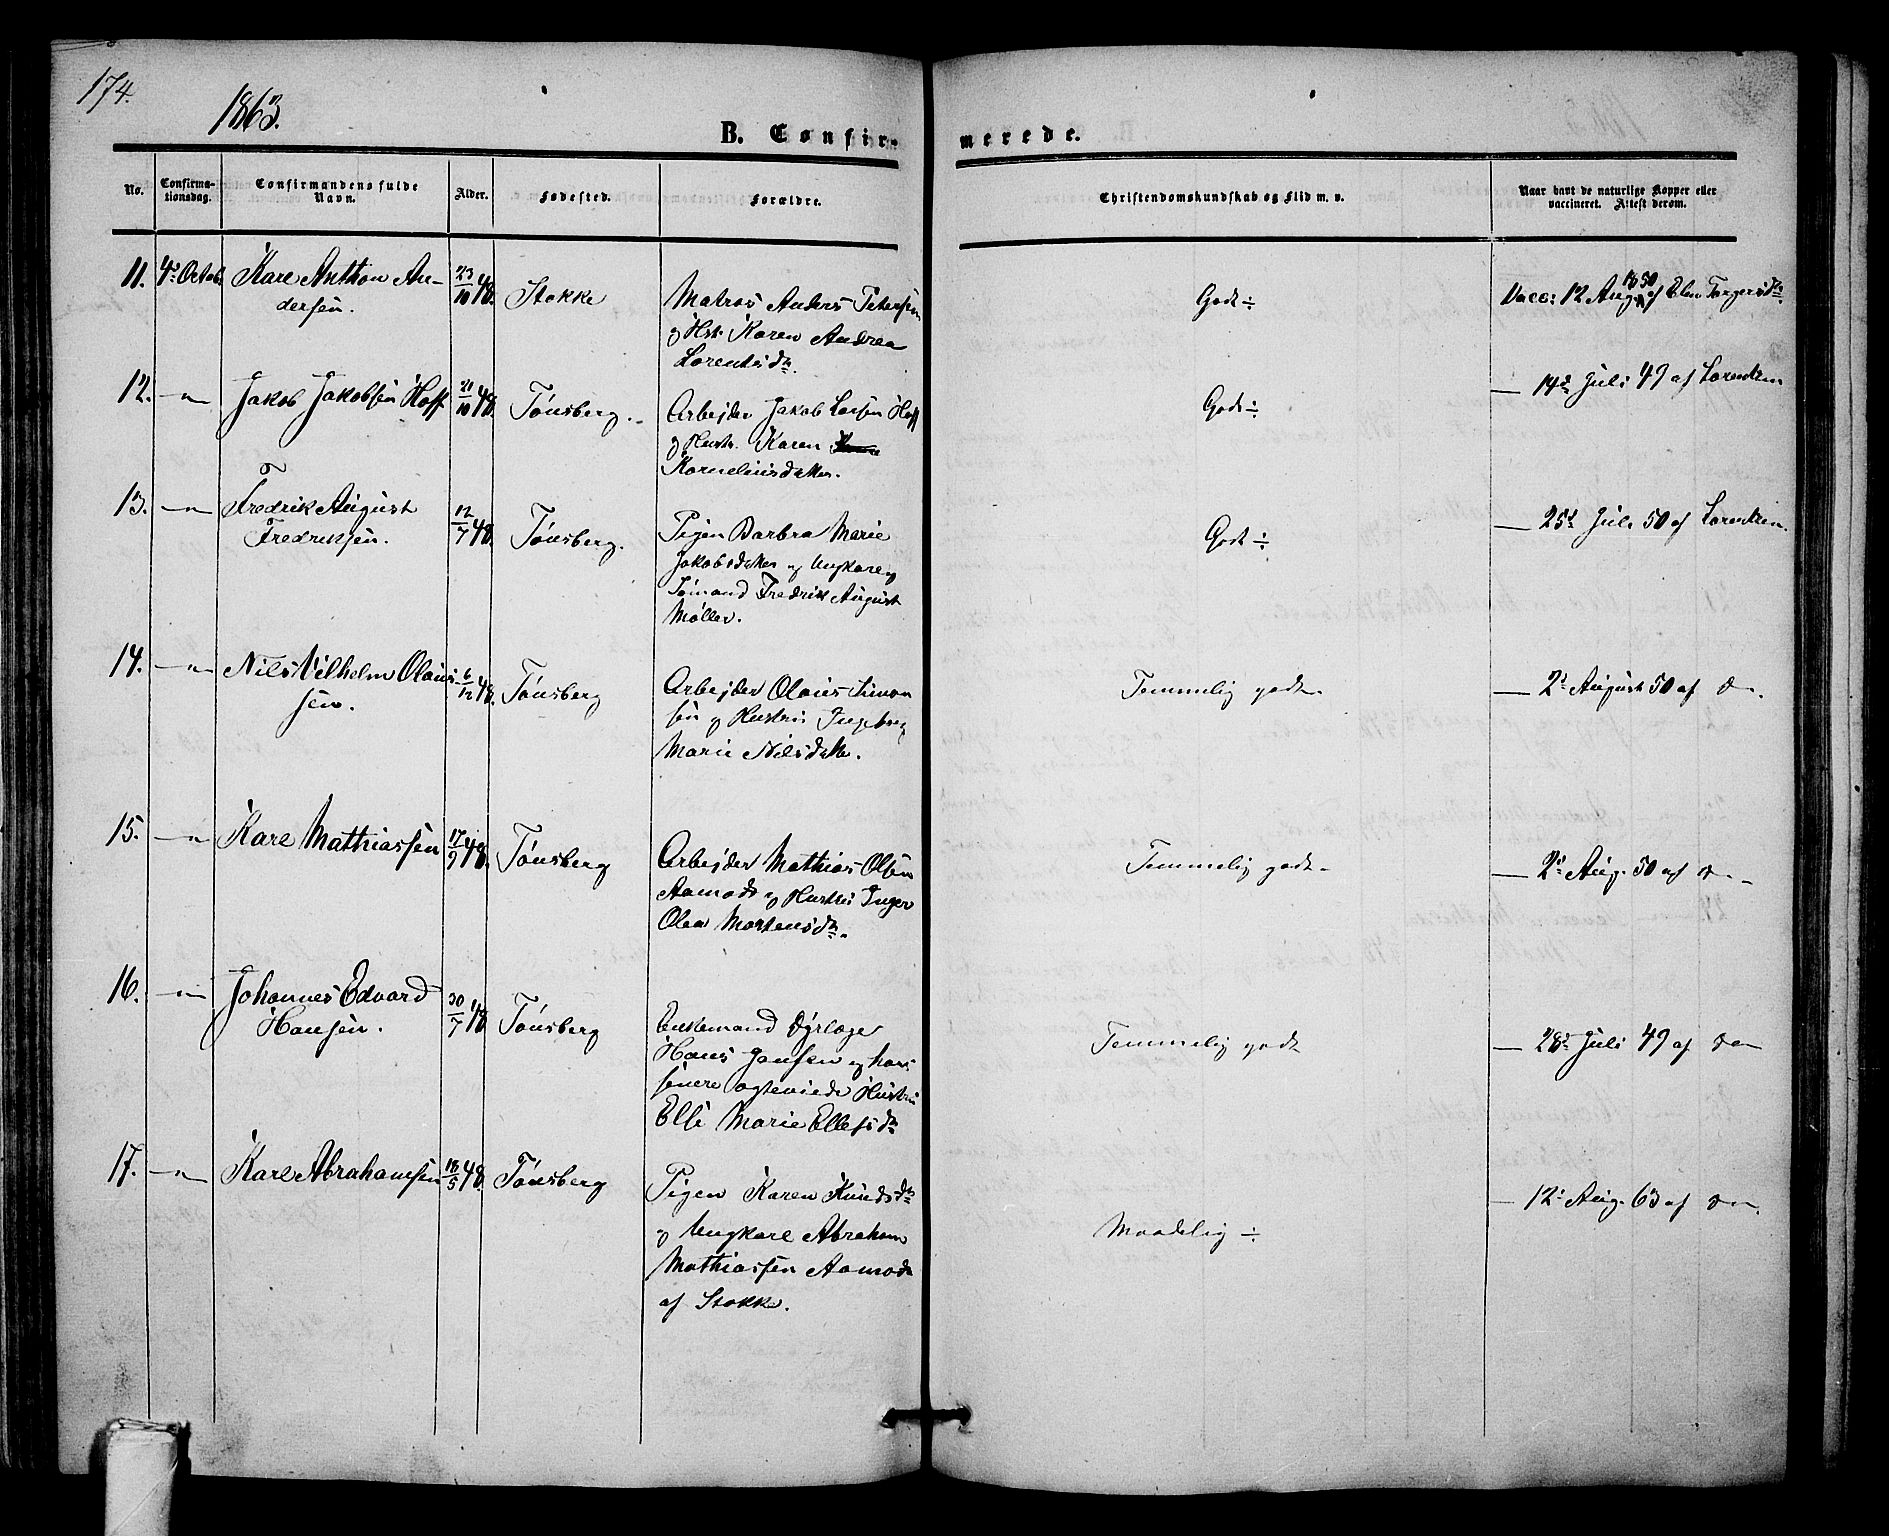 174.
1863.
B. Confir-
merede.
No.
Confirma-
tionsdag.
Confirmandens fulde
Navn.
Alder.
Fødested.
Forældre.
Christendomskundskab og Flid m. v.
Naar havt de naturlige Kopper eller
vaccineret. Attest derom.
11. 4de Octob. Karl Anthon An- 23/10 48. Stokke Matros Anders Petersen Godt ÷ Vacc: 12 Aug. 1850 af Elen Torgersdr
dersen.
og Hst. Karen Andrea
Lorentsdr.
12. —"— Jakob Jakobsen Hoff 21/10 48. Tønsberg. Arbejder Jakob Larsen Hoff Godt ÷ — 14de Juli 49 af Lorentzen
og Hustr. Karen
Korneliusdatter.
13. —"— Fredrik August 12/7 48. Tønsberg. Pigen Barbra Marie Godt ÷ — 25de Juli 50 af Lorentzen.
Fredriksen.
Jakobsdatter og Ungkarl og
Sømand Fredrik August
Møller.
14. —"— Nils Vilhelm Olaus- 6/12 48. Tønsberg Arbejder Olaus Simon Temmelig godt — 2de August 50 af do.
sen.
sen og Hustru Ingeborg
Marie Nilsdatter.
15. —"— Karl Mathiassen 17/9 48. Tønsberg Arbejder Mathias Olsen Temmelig godt — 2de Aug. 50 af do
Aamodt og Hustru Inger
Olea Mortensdr.
16. —"— Johannes Edvard 30/7 48 Tønsberg Enkemand Dyrlæge Temmelig godt — 28de Juli 49 af do
Hansen.
Hans Jansen og hans
senere ægteviede Hustru
Elli Marie Ellefsdr
17. —"— Karl Abrahamsen 18/5 48. Tønsberg Pigen Karen Knudsdr Maadelig ÷ — 12te Aug. 63 af do.
og Ungkarl Abraham
Mathiassen Aamodt
af Stokke.